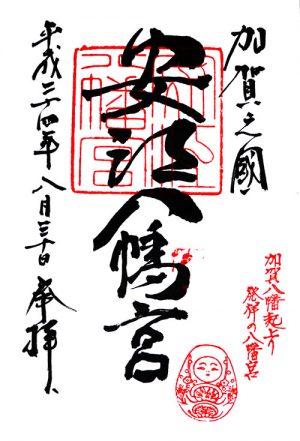 加賀之國
安江八幡宮
平成二十四年八月三十日 奉拝
加賀八幡起上り
発祥の八幡宮